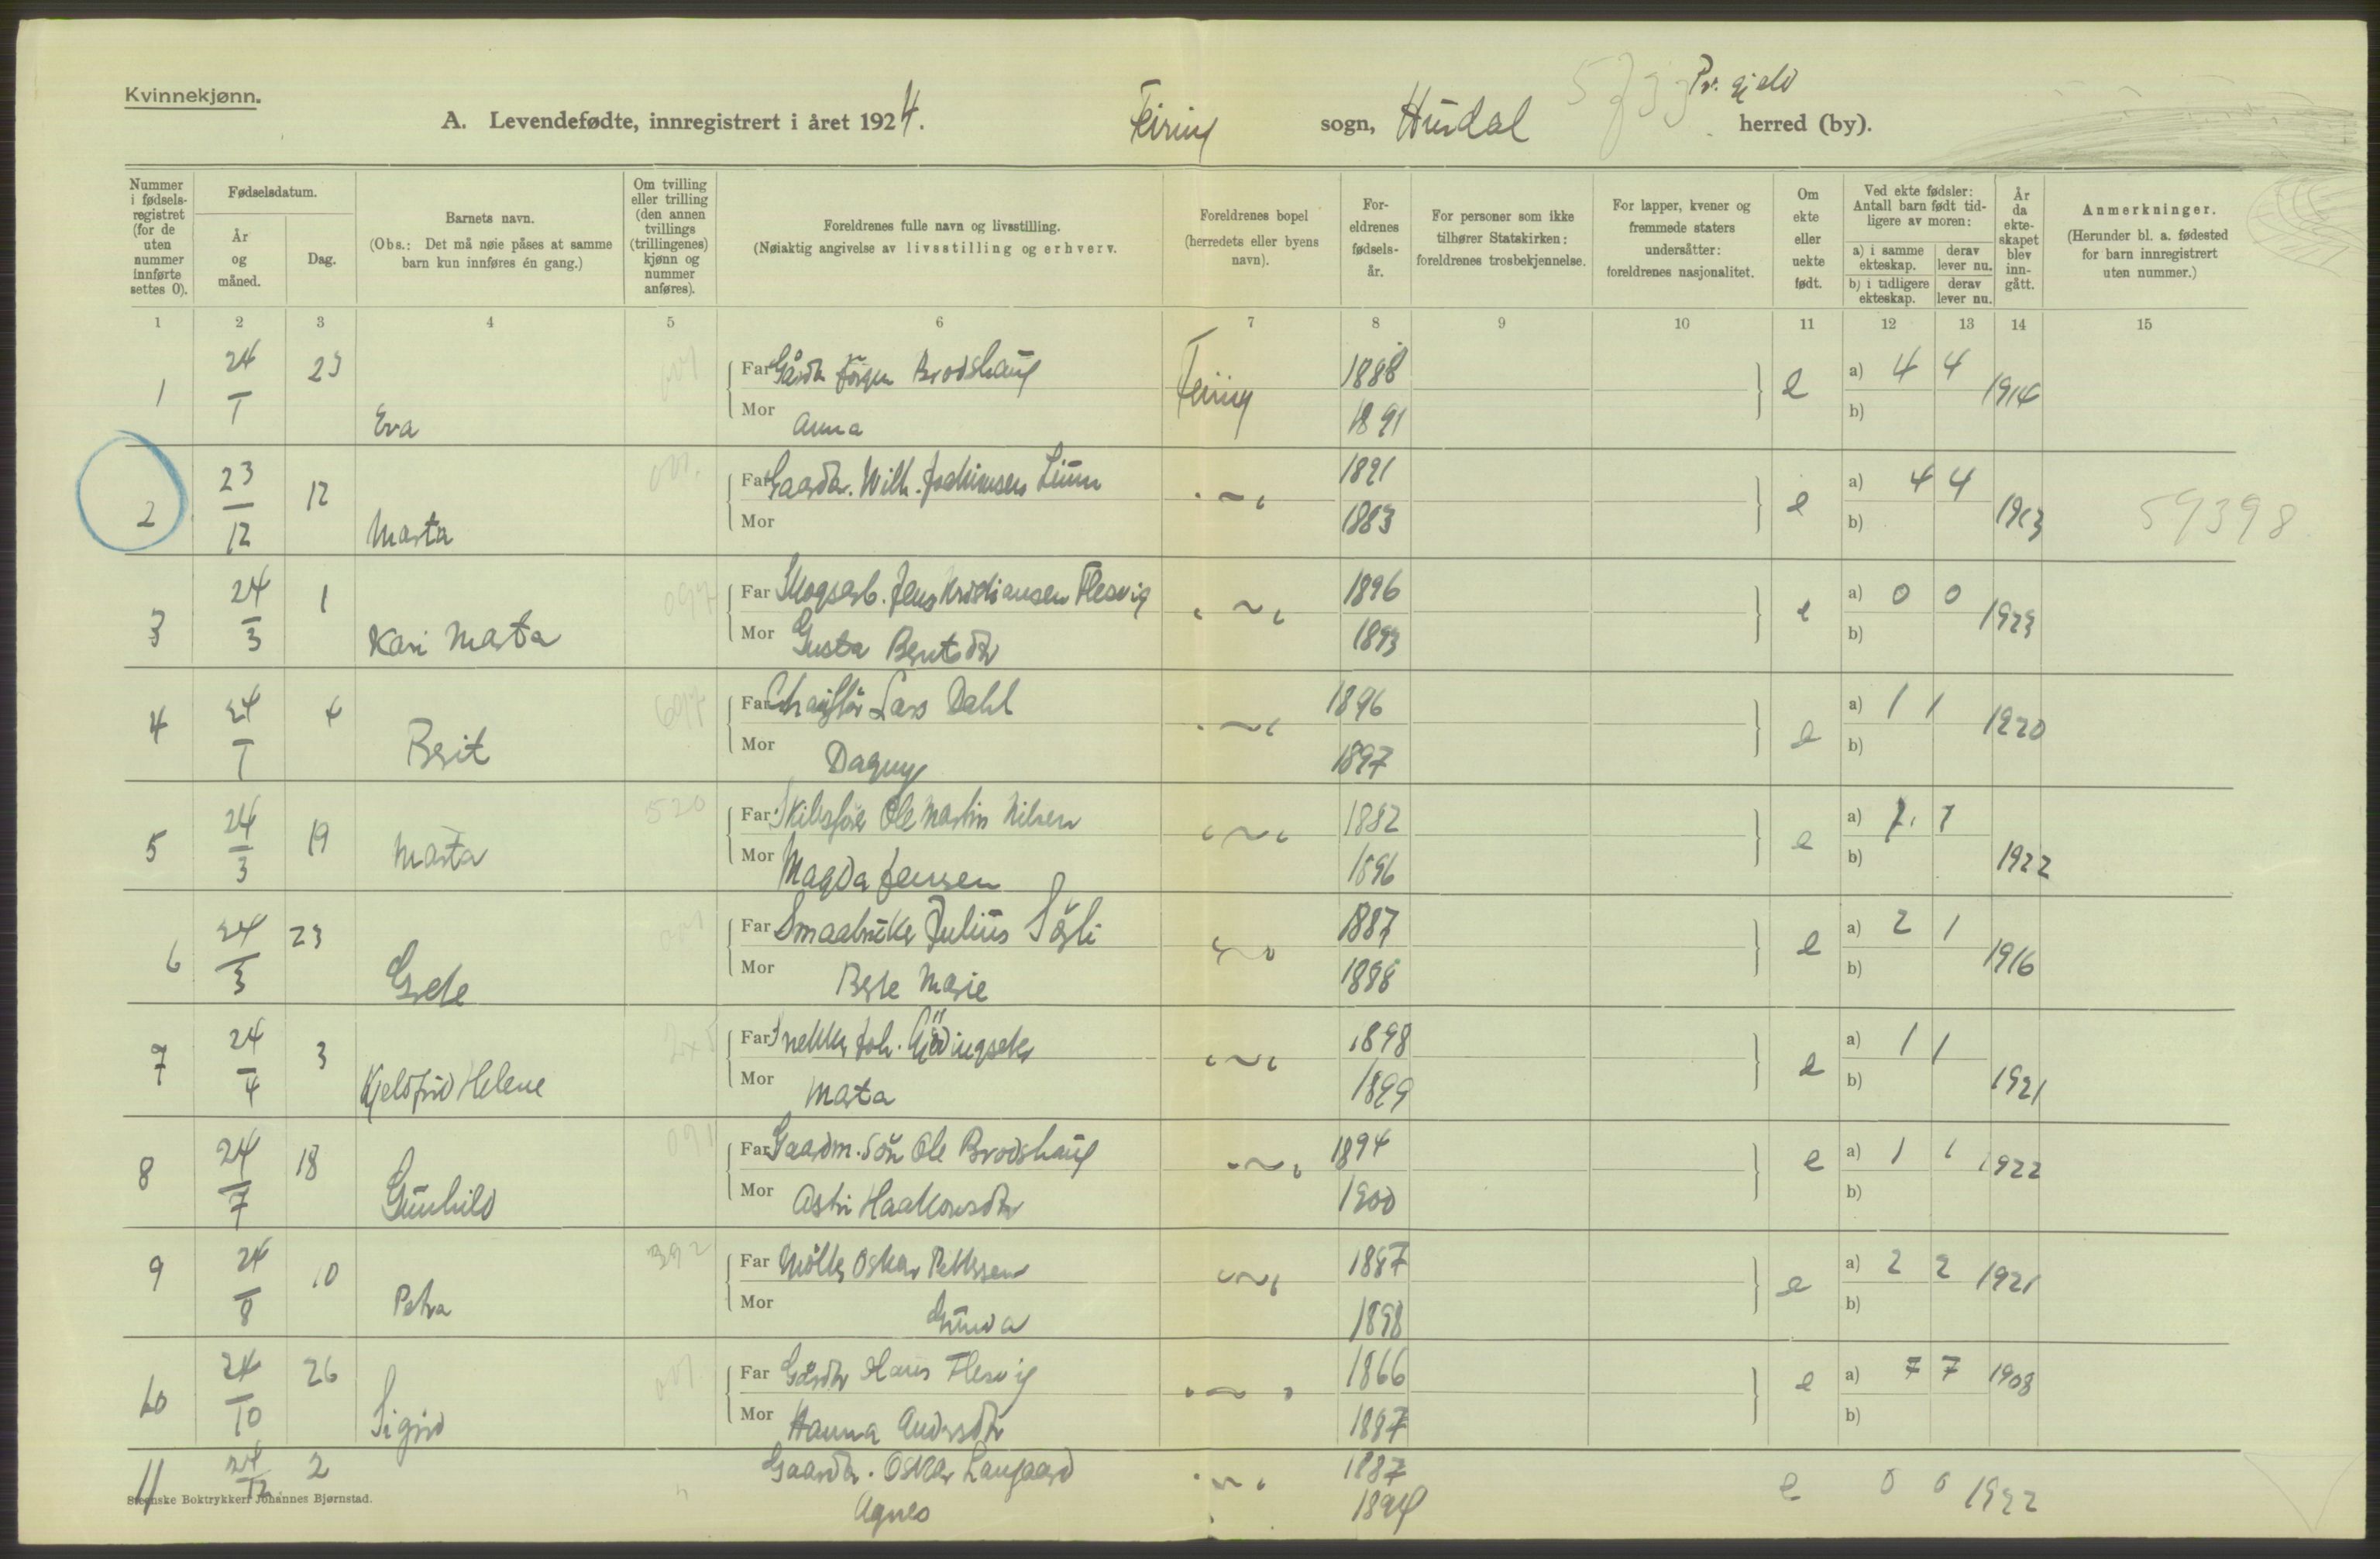 Kvinnekjønn.
A. Levendefødte, innregistrert i året 1924. Feiring sogn, Hurdal Pr. gjeld herred (by).
Nummer i fødsels-registret (for de uten nummer innførte settes 0).
Fødselsdatum.
År og måned.
Dag.
Barnets navn.
(Obs.: Det må nøie påses at samme barn kun innføres én gang.)
Om tvilling eller trilling (den annen tvillings (trillingenes) kjønn og nummer anføres).
Foreldrenes fulle navn og livsstilling.
(Nøiaktig angivelse av livsstilling og erhverv.
Foreldrenes bopel (herredets eller byens navn).
For-eldrenes fødsels-år.
For personer som ikke tilhører Statskirken: foreldrenes trosbekjennelse.
For lapper, kvener og fremmede staters undersåtter: foreldrenes nasjonalitet.
Om ekte eller uekte født.
Ved ekte fødsler: Antall barn født tid-ligere av moren:
a) i samme ekteskap. derav lever nu.
b) i tidligere ekteskap. derav lever nu.
År da ekte-skapet blev inn-gått.
Anmerkninger.
(Herunder bl. a. fødested for barn innregistrert uten nummer.)
1 2 3 4 5 6 7 8 9 10 11 12 13 14 15
1 24/1 23 Eva Far Gårdbr Jörgen Brodshaug Feiring 1888 e a) 4 4 1914
Mor Anna 1891 b)
2 23/12 12 Marta Far Gaardbr. Wilh. Jochimsen Linn 1891 e a) 4 4 1913 59398
Mor 1883 b)
3 24/3 1 Kari Marta Far Skogsarb. Jens Kristiansen Flesvig 1896 e a) 0 0 1923
Mor Gusta Berntsdtr 1893 b)
4 24/1 4 Berit Far Chaufför Lars Dahl 1896 e a) 1 1 1920
Mor Dagny 1897 b)
5 24/3 19 Marta Far Ole Martin Nilsen 1882 e a) 1 1 1922
Mor Magda Jensen 1896 b)
6 24/3 23 Grete Far Smaabruker Julius 1887 e a) 2 1 1916
Mor Berte Marie 1898 b)
7 24/4 3 Kjeldfrid Helene Far Snekker Joh. 1898 e a) 1 1 1921
Mor Marta 1899 b)
8 24/7 18 Gunhild Far Gaardm. sön Ole Brodshaug 1894 e a) 1 1 1922
Mor Astri Haakonsdtr 1900 b)
9 24/8 10 Petra Far Möller Oskar Pettersen 1887 e a) 2 2 1921
Mor Gunda 1898 b)
10 24/10 26 Sigrid Far Gårdbr Hans Flesvig 1866 e a) 7 7 1908
Mor Hanna Andersdtr 1887 b)
11 24/12 2 Gaardbr. Oskar Langaard 1887 e 0 0 1922
Agnes 1894
Steenske Boktrykkeri Johannes Bjørnstad.